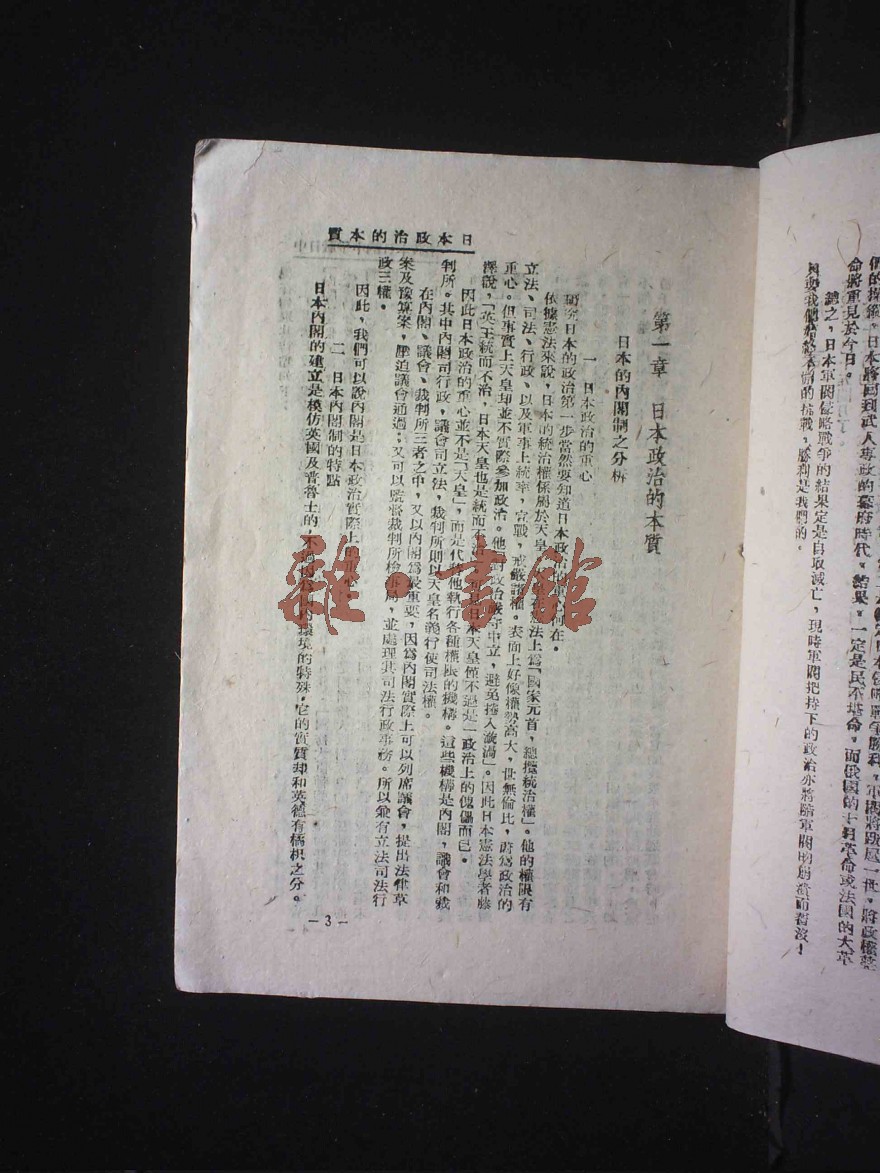 們的探鎖。日本將回到武人專政的幕府時代。結果,一定是民不堪命。而俄國的十月革命或法國的大革
命將重見於今日。
總之,日本軍閥侵略戰爭的結果定是自取滅亡,現時軍閥把持下的政治亦將隨軍閥的崩潰而
抗戰,勝利是我們的。
日本政治的本質
第一章 日本政治的本質
日本的內閣制之分析
一 日本政治的重心
研究日本的政治第一步當然要知道日本政治的重心何在。
依據憲法來說,日本的統治權係屬於天皇
憲法上爲「國家元首,總攬統治權」。他的權限有
立法、司法、行政、以及軍事上統率,宣戰,戒嚴諸權。表面上好像權勢高大,世無倫比,蔚爲政治的
重心。但事實上天皇却並不實際參加政治。他
政治嚴守中立,避免捲入漩渦」。因此日本憲法學者藤
澤說,「英王統而不治,日本天皇也是統而不
日本天皇僅不過是一政治上的傀儡而已。
因此日本政治的重心並不是「天皇」,而是代
他執行各種權限的機構。這些機構是內閣,議會和裁
判所。其中內閣司行政,議會司立法,裁判所則以天皇名義行使司法權。
在內閣、議會、裁判所三者之中,又以內閣爲最重要,因爲內閣實際上可以列席議會,提出法律草
案及豫算案,壓迫議會通過;又可以監督裁判所檢事局,並處理其司法行政事務。所以兼有立法司法行
政三權。
因此,我們可以說內閣是日本政治實際上的
心。
二 日本內閣制的特點
日本內閣的建立是模仿英國及普魯士的,不過
環境的特殊,它的實質却和英德有橘枳之分。
—3—
雜·書館